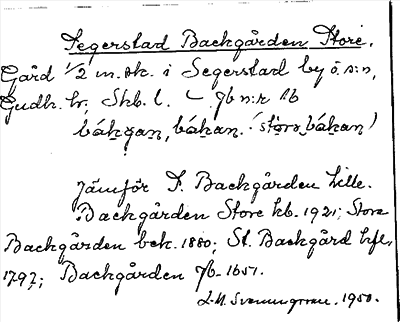 Segerstad Backgården Store.
Gård 1/2 m. sk. i Segerstad by ö. s:n,
Gudh. hr, Skb. l. Jb n:r 16
bákgan, bákan. (stora bákan)
Jämför S. Backgården Lille.
Backgården Store kb. 1921; Stora
Backgården bek. 1880; St. Backgård hfl.
1797; Backgården Jb. 1651.
1950.